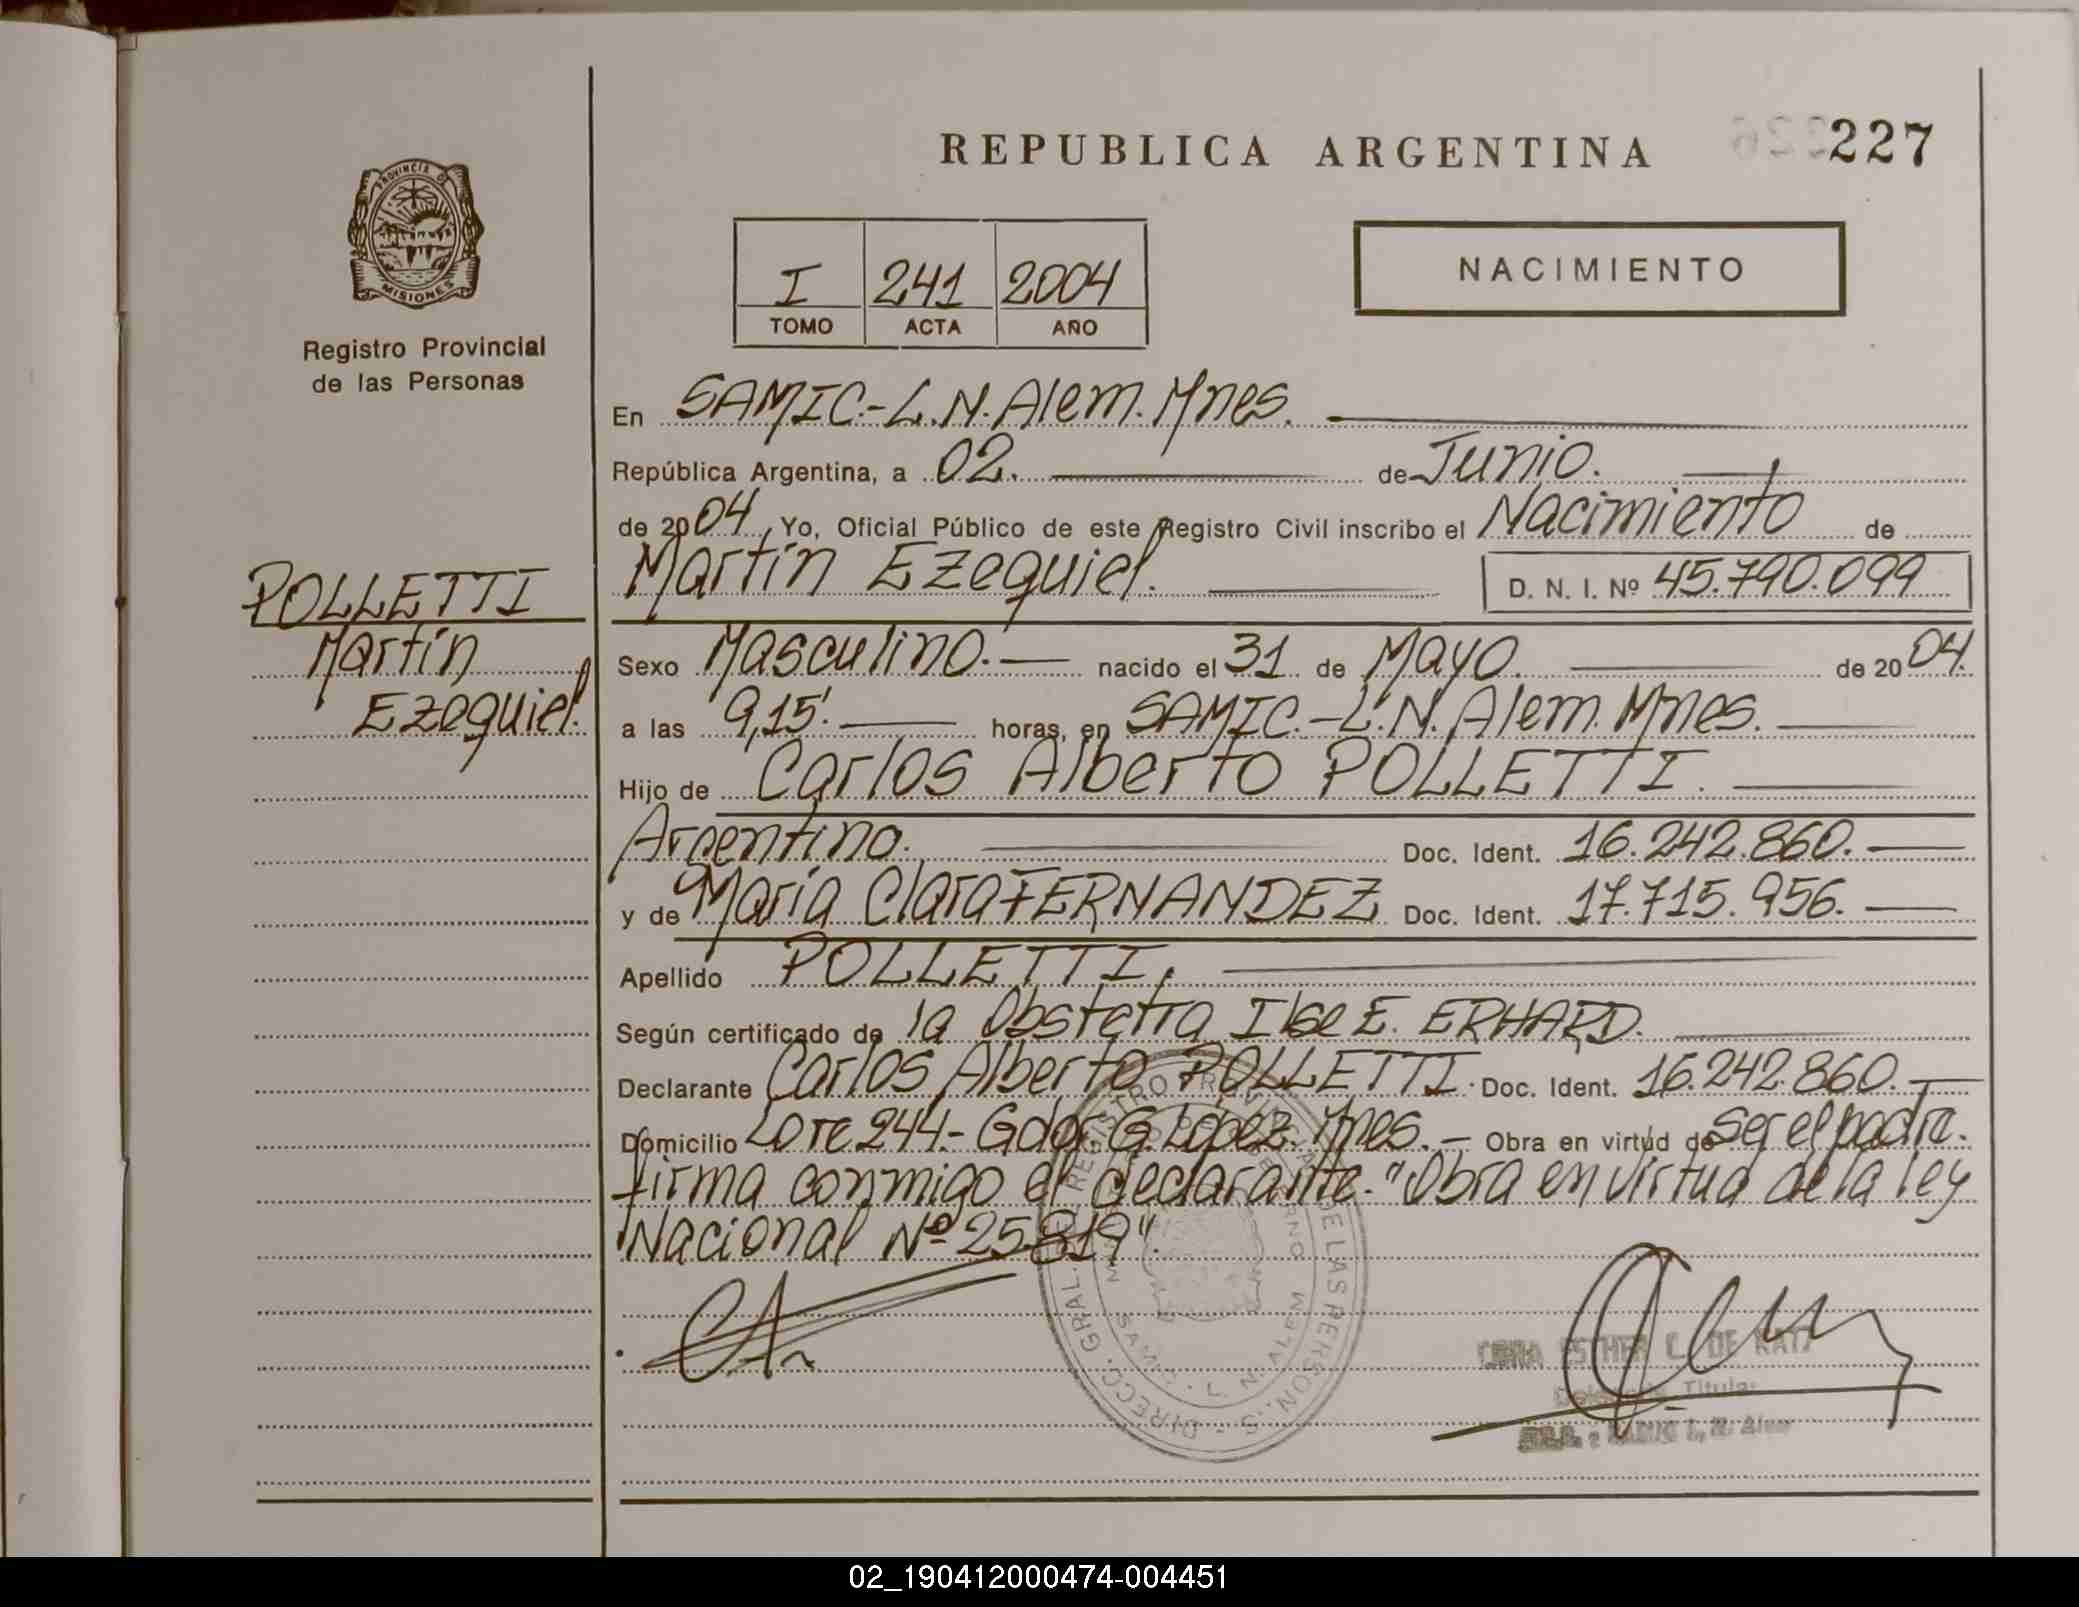 REPUBLICA ARGENTINA
227
PROVINCIA DE
MISIONES
Registro Provincial
de las Personas
I 241 2004
TOMO ACTA AÑO
NACIMIENTO
En SAMIC.-L.N.Alem.Mnes.
República Argentina, a 02. de Junio.
de 2004, Yo, Oficial Público de este Registro Civil inscribo el Nacimiento de
Martín Ezequiel. D. N. I. Nº 45.790.099
POLLETTI
Martín
Ezequiel.
Sexo Masculino. nacido el 31 de Mayo. de 2004.
a las 9,15'. horas, en SAMIC.-L.N.Alem.Mnes.
Hijo de Carlos Alberto POLLETTI.
Argentino. Doc. Ident. 16.242.860.
y de María Clara FERNANDEZ Doc. Ident. 17.715.956.
Apellido POLLETTI.
Según certificado de la Obstetra Ilse E. ERHARD.
Declarante Carlos Alberto POLLETTI. Doc. Ident. 16.242.860.
Domicilio Lote 244.- Gdor G. López. Mnes. Obra en virtud de ser el padre.
firma conmigo el declarante."Obra en virtud de la ley
Nacional Nº 25.819".
DIRECC. GRAL. DE REGISTRO PROVINCIAL DE LAS PERSONAS
L. N. ALEM
ESTHER L. DE KATZ
Titular
L. N. Alem
02_190412000474-004451